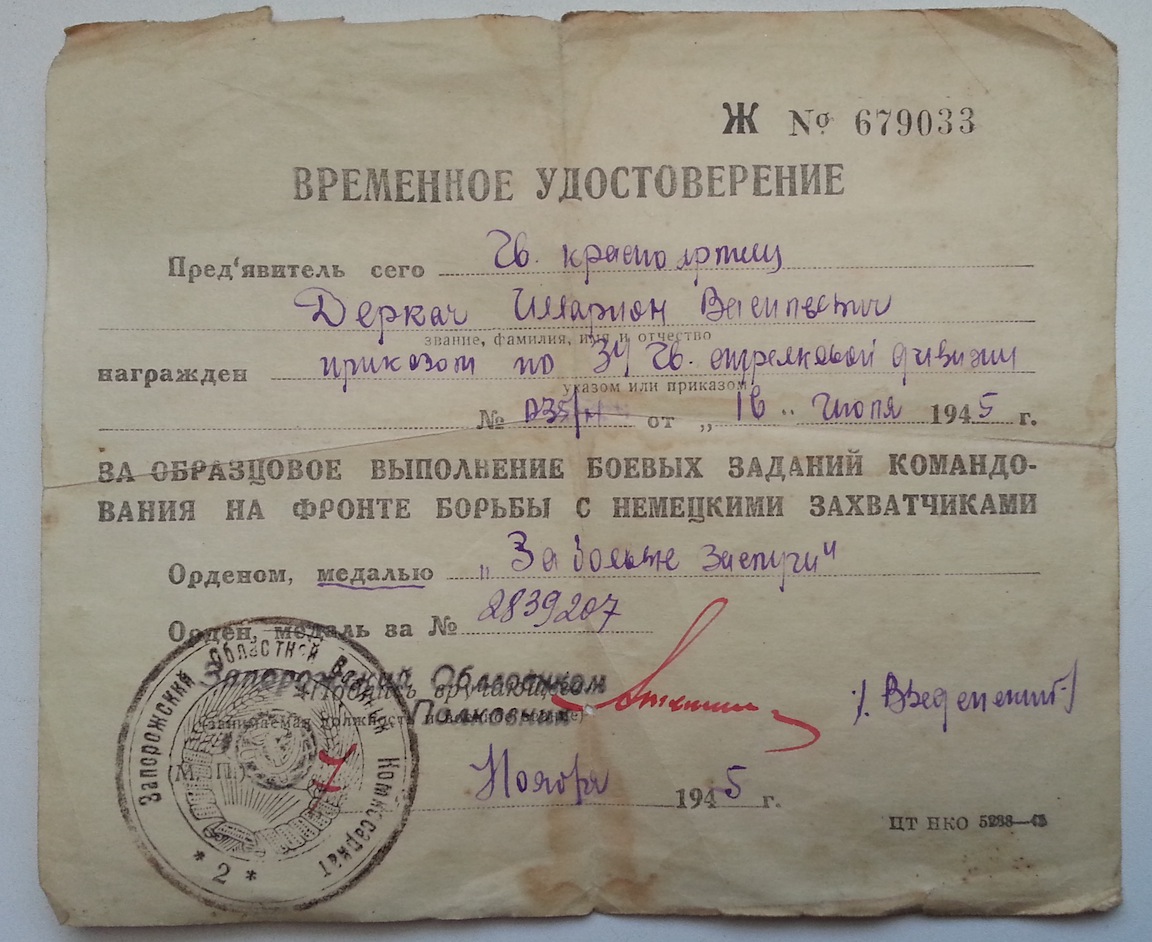 Ж № 679033
ВРЕМЕННОЕ УДОСТОВЕРЕНИЕ
Пред'явитель сего Гв. красноармеец
Деркач Илларион Васильевич
звание, фамилия, имя и отчество
награжден приказом по 34 Гв. стрелковой дивизии
указом или приказом
№ 035/н от „16" Июля 1945 г.
ЗА ОБРАЗЦОВОЕ ВЫПОЛНЕНИЕ БОЕВЫХ ЗАДАНИЙ КОМАНДО-
ВАНИЯ НА ФРОНТЕ БОРЬБЫ С НЕМЕЦКИМИ ЗАХВАТЧИКАМИ
Орденом, медалью „За боевые заслуги"
Орден, медаль за № 2839207
Запорожский Облвоенком
Подпись вручающего
Полковник /Введенский/
(занимаемая должность и военное звание)
(М. П.)
7 Ноября 1945 г.
ЦТ НКО 5288—45
Запорожский Областной Военный Комиссариат
* 2 *